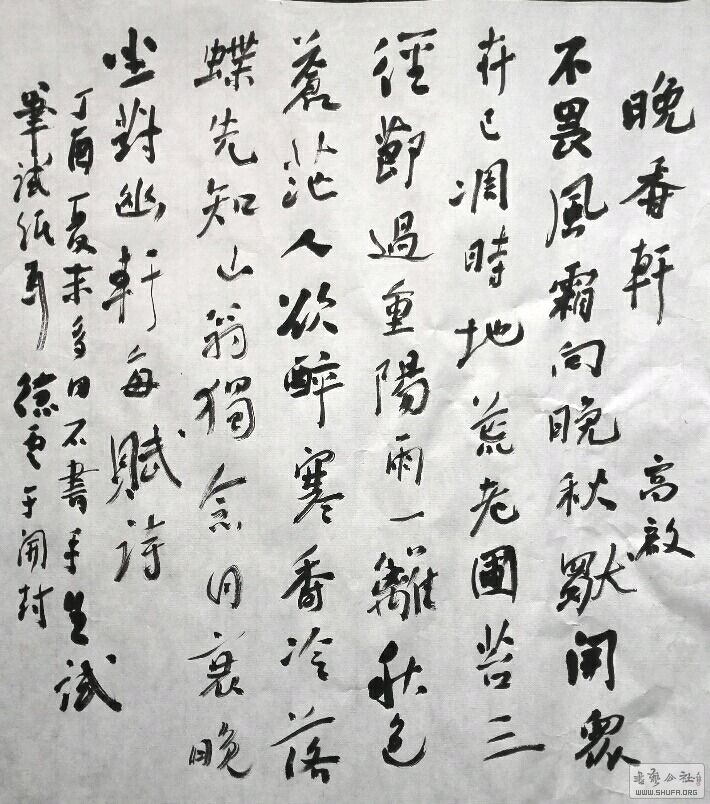 晚香軒 高啟
不畏風霜向晚秋獨開眾
卉已凋時地荒老圃苔三
徑節過重陽雨一籬秋色
蒼茫人欲醉寒香冷落
蝶先知山翁獨念同衰晚
坐對幽軒每賦詩
丁酉夏末多日不書手生試
筆試紙耳 德雲于開封
书艺公社
WWW.SHUFA.ORG